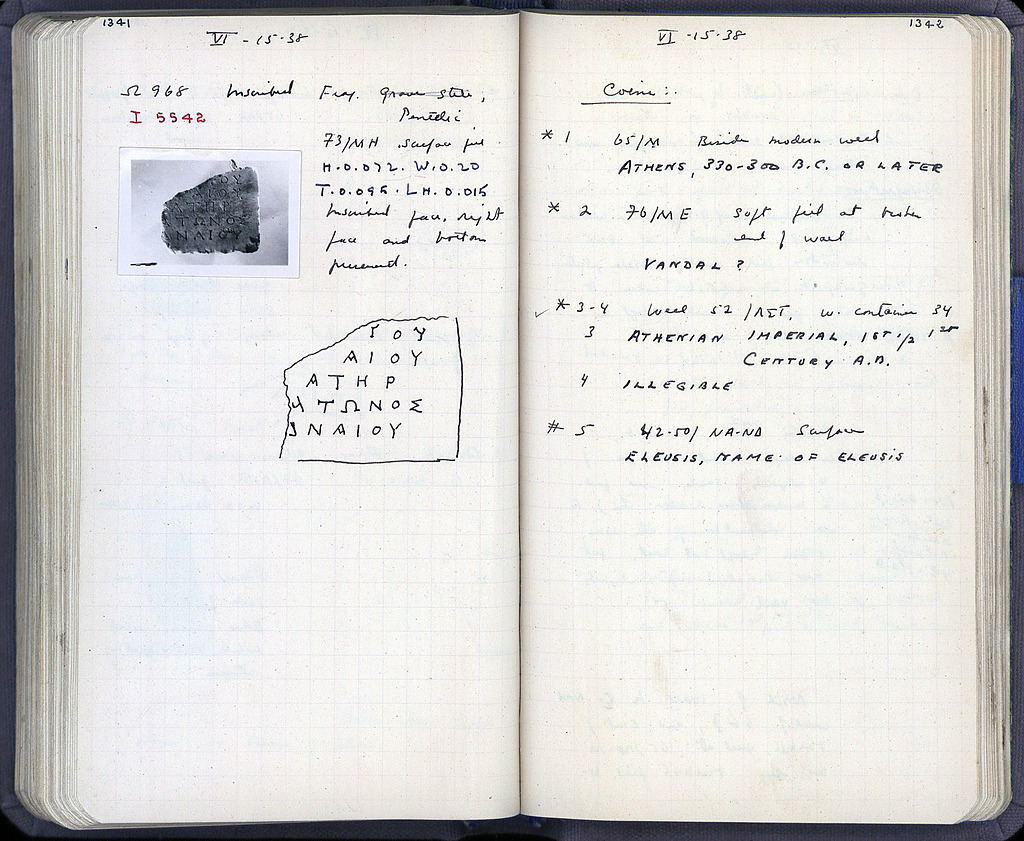 1341
VI - 15-38
Ω 968 Inscribed Frag. Grave Stele,
I 5542
Pentelic
73/ΜΗ Surface fill
H. 0.072. W. 0.20
T. 0.095. LH. 0.015
Inscribed face, right
face and bottom
preserved.
ΤΟΥ
ΑΙΟΥ
ΑΤΗΡ
ΤΩΝΟΣ
ΝΑΙΟΥ
ΤΟΥ
ΑΙΟΥ
ΑΤΗΡ
ΤΩΝΟΣ
ΝΑΙΟΥ
1342
VI - 15-38
Coins:
* 1 65/Μ Beside modern well
ATHENS, 330-300 B.C. OR LATER
* 2 70/ΜΕ Soft fill at
end of wall
VANDAL ?
* 3-4 Well 52/ΛΣΤ, w. container 34
3 ATHENIAN IMPERIAL, 1ST 1/2 1ST
CENTURY A.D.
4 ILLEGIBLE
* 5 42-50/ ΝΑ-ΝΔ Surface
ELEUSIS, NAME OF ELEUSIS